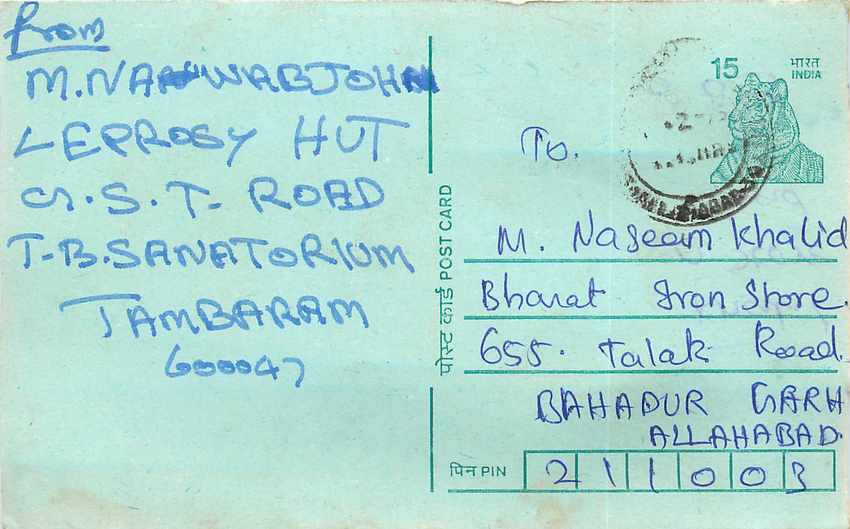 from
M. NAWWABJOHN
LEPROSY HUT
G.S.T. ROAD
T-B. SANATORIUM
TAMBARAM
600047
पोस्ट कार्ड POST CARD
15
भारत
INDIA
To.
M. Naseem Khalid
Bharat Iron Store.
655. Talak Road.
BAHADUR GARH
ALLAHABAD
पिन PIN 211003